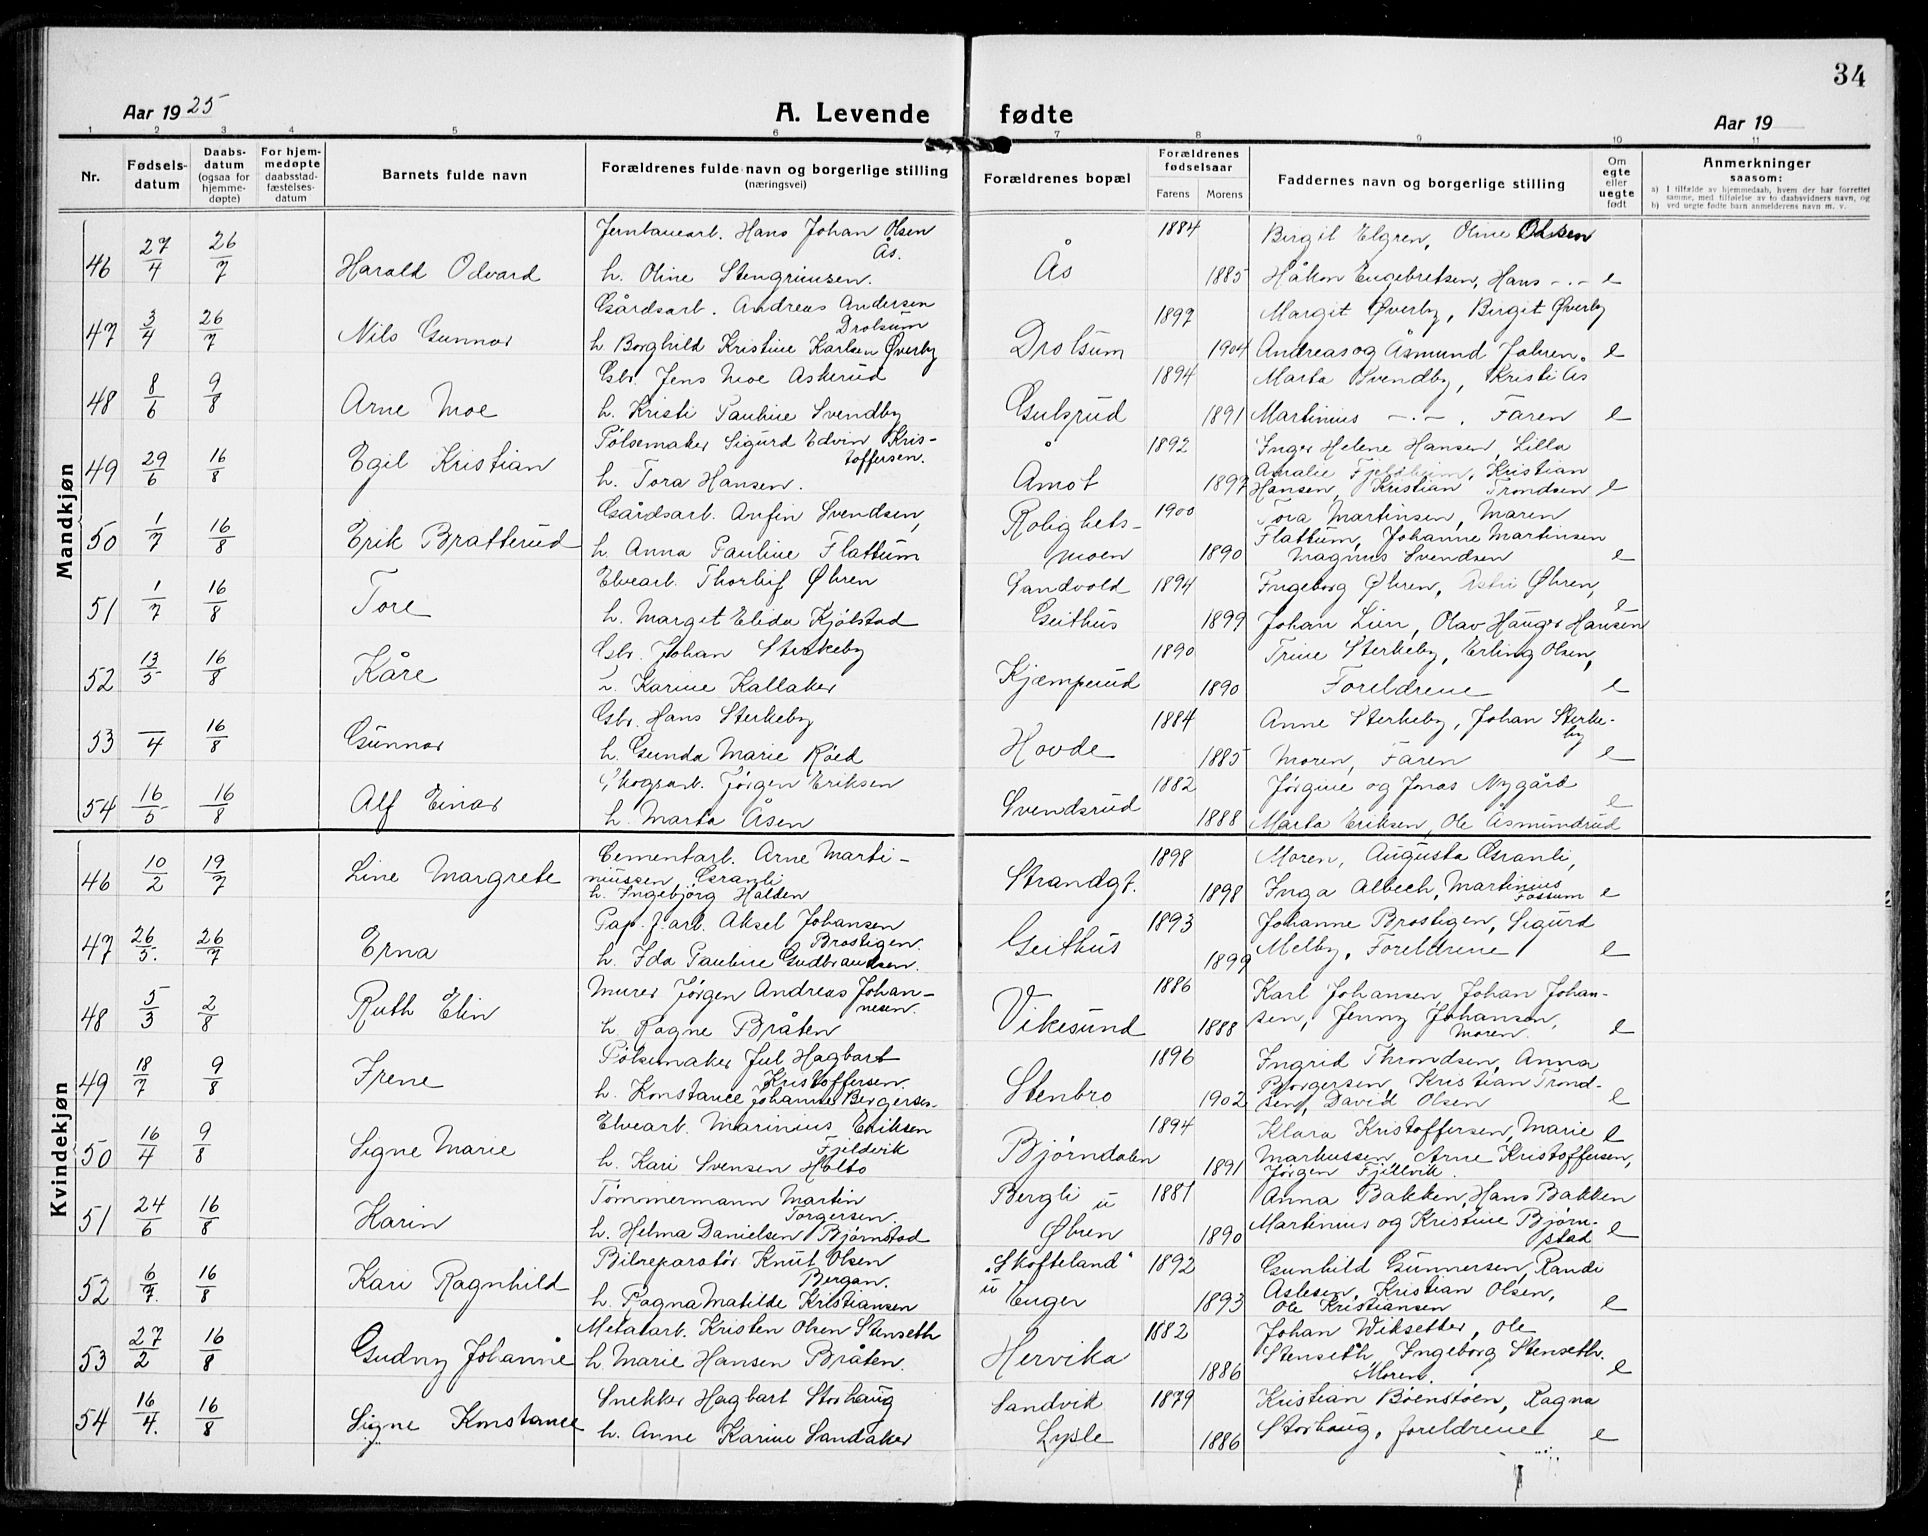 34
Aar 1925
A. Levende fødte
Aar 19
1 2 3 4 5 6 7 8 9 10 11
Nr. Fødsels-datum Daabs-datum (ogsaa for hjemme-døpte) For hjem-medøpte daabsstad-fæstelses-datum Barnets fulde navn Forældrenes fulde navn og borgerlige stilling (næringsvei) Forældrenes bopæl Forældrenes fødselsaar Farens Morens Faddernes navn og borgerlige stilling Om egte eller uegte født Anmerkninger saasom:
a) I tilfælde av hjemmedaab, hvem der har forrettet samme, med tilføielse av to daabsvidners navn, og
b) ved uegte fødte barn anmelderens navn m. v.
Mandkjøn
46 27/4 26/7 Harald Odvard Jernbanearb. Hans Johan Olsen Ås. Ås 1884 Birgit Elgren, Oline Olsen
h. Oline Stengrimsen. 1885 Håkon Engebretsen, Hans -.- e
47 3/4 26/7 Nils Gunnar Gårdsarb. Andreas Andersen Drolsum Drolsum 1897 Margit Øverby, Birgit Øverby
h Borghild Kristine Karlsen Øverby 1904 Andreas og Åsmund Jahren. e
48 8/6 9/8 Arne Moe Gbr. Jens Moe Askerud Gulsrud 1894 Marta Svendby, Kristi Ås
h. Kristi Pauline Svendby 1891 Martinius -.-. Faren e
49 29/6 16/8 Egil Kristian Pølsemaker Sigurd Edvin Kris-toffersen. Åmot 1892 Inger Helene Hansen, Lilla
h. Tora Hansen. 1897 Amalie Fjeldheim, Kristian Hansen, Kristian Trondsen e
50 1/7 16/8 Erik Bratterud Gårdsarb. Anfin Svendsen, Rolighets-moen 1900 Tora Martinsen, Maren
h Anna Pauline Flattum 1890 Flattum, Johanne Martinsen Magnus Svendsen e
51 1/7 16/8 Tore Elvearb. Thorleif Øhren Sandvold Geithus 1894 Ingeborg Øhren, Astri Øhren,
h. Margit Elida Kjølstad 1899 Johan Lien, Olav Hauger Hansen e
52 13/5 16/8 Kåre Gbr. Johan Sterkeby Kjæmperud 1890 Trine Sterkeby, Erling Olsen,
h. Karine Kallaker 1890 Foreldrene e
53 —/4 16/8 Gunnar Gbr. Hans Sterkeby Hovde 1884 Anne Sterkeby, Johan Sterke-by
h. Gunda Marie Røed 1885 Moren, Faren e
54 16/5 16/8 Alf Einar Skogsarb. Jørgen Eriksen Svendsrud 1882 Jørgine og Jonas Nygård
h. Marta Åsen 1888 Marta Eriksen, Ole Åsmundrud e
Kvindekjøn
46 10/2 19/7 Line Margrete Cementarb. Arne Marti-niussen Granli Strandgt. 1898 Moren, Augusta Granli,
h. Ingebjørg Halden 1898 Inga Albech, Martinius Fossum e
47 26/5. 26/7 Erna Pap. f. arb. Aksel Johansen Brostigen. Geithus 1893 Johanne Brostigen, Sigurd
h. Ida Pauline Gudbrandsen. 1899 Melby, Foreldrene e
48 5/3 2/8 Ruth Elin Murer Jørgen Andreas Johan-nesen. Vikesund 1886 Karl Johansen, Johan Johan-
h. Ragne Bråten 1888 sen, Jenny Johansen, Moren. e
49 18/7 9/8 Irene Pølsemaker Jul Hagbart Kristoffersen. Stenbro 1896 Ingrid Throndsen, Anna
h. Konstance Johanne Bergersen. 1902 Borgersen, Kristian Trond-sen, David Olsen e
50 16/4 9/8 Signe Marie Elvearb. Marinius Eriksen Fjeldvik Bjørndalen 1894 Klara Kristoffersen, Marie e
h. Kari Svensen Holto 1891 Markussen, Arne Kristoffersen, Jørgen Fjellvik.
51 24/6 16/8 Karin Tømmermann Martin Torgersen. Bergli u Øhren 1881 Anna Bakken, Hans Bakken
h. Helma Danielsen Bjørnstad 1890 Martinius og Kristine Bjørn-stad e
52 6/7. 16/8 Kari Ragnhild Bilreparatør Knut Olsen Bergan. „Skofteland“ u Enger 1892 Gunhild Gunnersen, Randi
h. Ragna Matilde Kristiansen 1893 Aslesen, Kristian Olsen, Ole Kristiansen e
53 27/2 16/8 Gudny Johanne Metalarb. Kristen Olsen Stenseth Hervika 1882 Johan Wiksetter, Ole
h. Marie Hansen Bråten. 1886 Stenseth, Ingeborg Stenseth. Moren. e
54 16/4. 16/8 Signe Konstance Snekker Hagbart Storhaug Sandvik Lysle 1879 Kristian Bøenstøen, Ragna
h. Anne Karine Sandaker 1886 Storhaug, foreldrene e